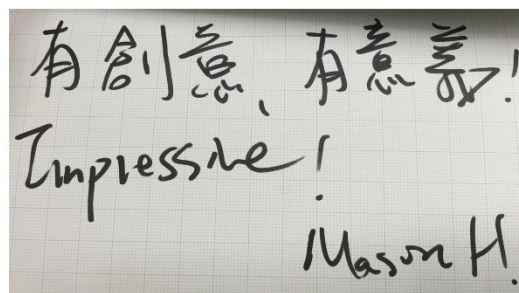 有創意、有意義!
Impressive!
Mason H.